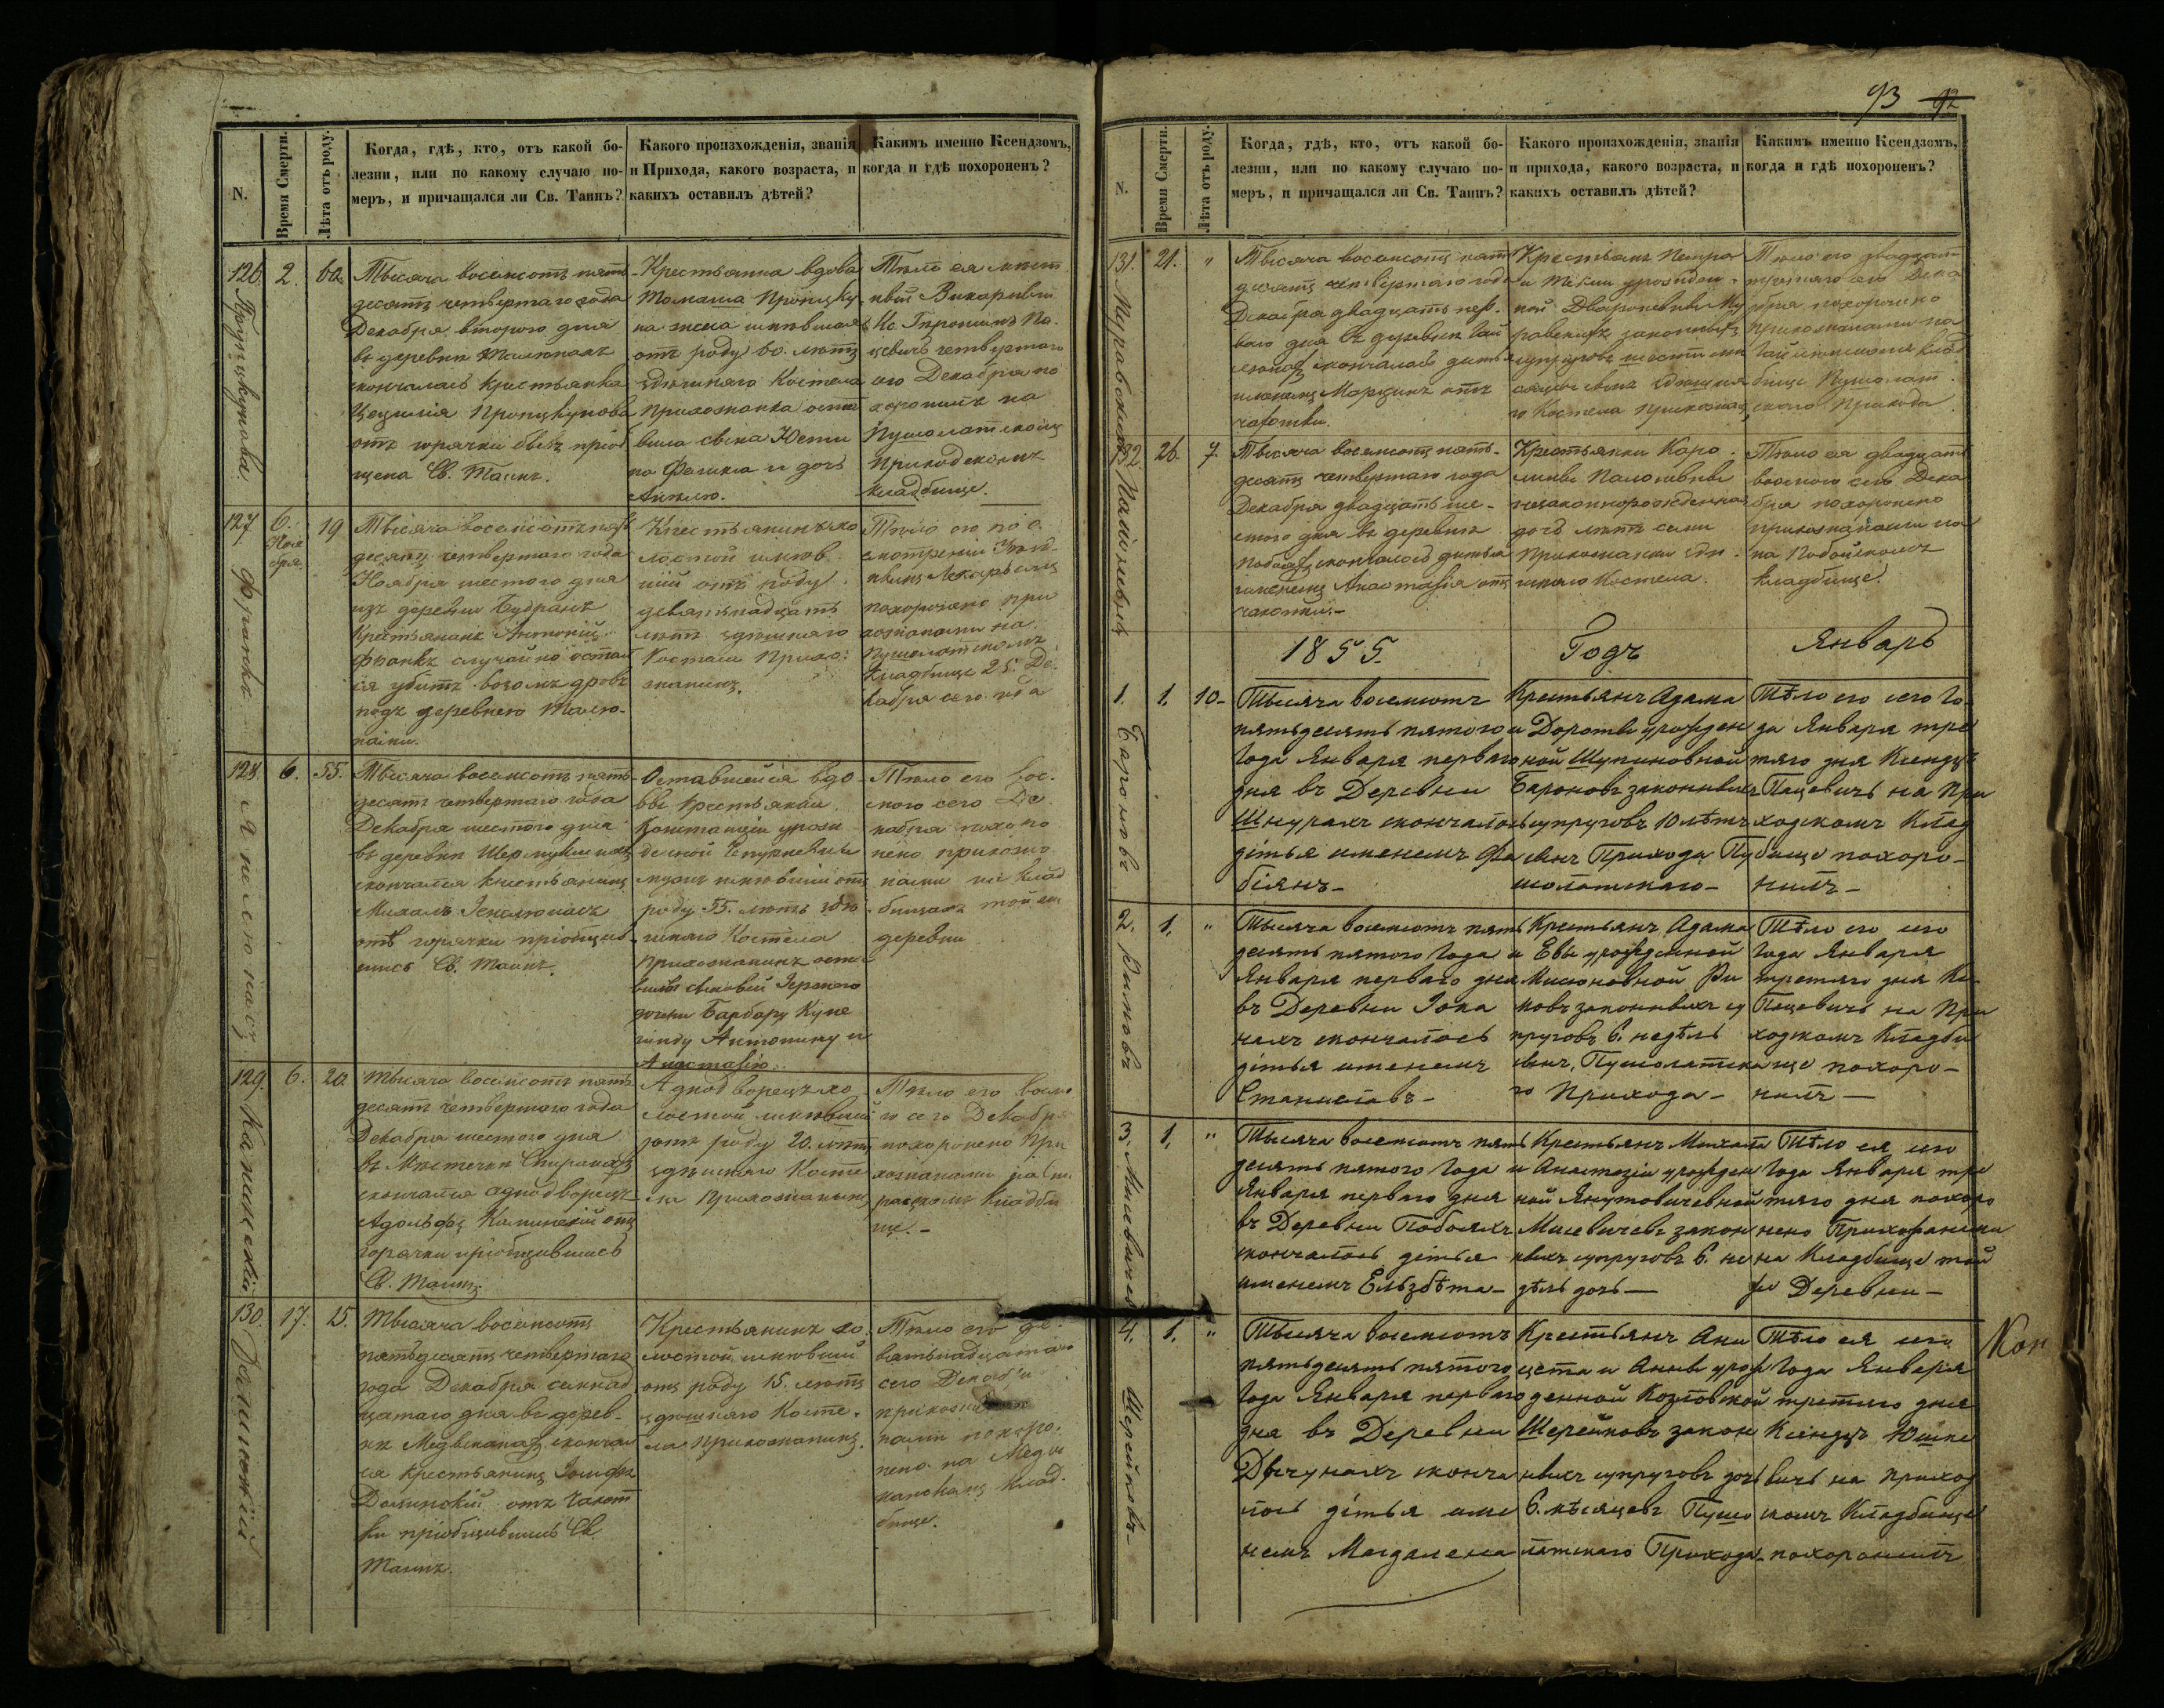 93 92
N.
Время Смерти.
Лѣта отъ роду.
Когда, гдѣ, кто, отъ какой бо-
лезни, или по какому случаю по-
меръ, и причащался ли Св. Таинъ?
Какого произхожденія, званія
и Прихода, какого возраста, и
какихъ оставилъ дѣтей?
Какимъ именно Ксендзомъ,
когда и гдѣ похороненъ?
126. 2. 60.
Тысяча восемсотъ пять
десятъ четвертаго года
Декабря второго дня
въ деревни
скончалась крестьянка
Цецилія
отъ горячки бывъ пріоб
щена Св. Таинъ.
Крестьянка вдова
Томаша
на жена имѣвшая
отъ роду 60. лѣтъ
здѣшняго Костела
прихожанка оста
вила сына Юсти
на Феликса и дочь
Анелю.
Тѣло ея мѣст
ный Викарный
Кс.
цевичь четвертого
сего Декабря по
хоронилъ на
Пушолатскомъ
приходскомъ
кладбище.
127 6. Ноя бря. 19
Франкъ
Тысяча восемсотъ пять
десятъ четвертаго года
Ноября шестого дня
изъ деревни Будранъ
Крестьянинъ Антоній
Франкъ случайно остал
ся убитъ возомъ дровъ
подъ деревнею
Крестьянинъ хо
лостой имѣв
шій отъ роду
девятьнадцать
лѣтъ здѣшняго
Костела Прихо:
жанинъ.
Тѣло его по о
смотреніи
похоронено при
хожанами на
Пушолатскомъ
кладбище 25. Де:
кабря сего года
128. 6. 55.
Тысяча восемсотъ пять
десятъ четвертаго года
Декабря шестого дня
въ деревни
скончался крестьянинъ
Михалъ
отъ горячки пріобщив
шись Св. Таинъ.
Оставшейся вдо
вы крестьянки
Констанціи урож
денной
мужъ имѣвшій отъ
роду 55. лѣтъ здѣ
шняго Костела
прихожанинъ оста
вилъ сыновей
дочери Барбару Куне
гинду Антонину и
Анастазію.
Тѣло его вос.
мого сего Де
кабря похоро
нено прихожа
нами на клад
бищахъ той же
деревни
129. 6. 20.
Каминскій
Тысяча восемсотъ пять
десятъ четвертого года
Декабря шестого дня
въ Мѣстечки
скончался однодворецъ
Адольфъ Каминскій отъ
горячки пріобщившись
Св. Таинъ.
Аднодворецъ хо
лостой имѣвшій
отъ роду 20. лѣтъ
здѣшняго Косте
ла прихожанинъ
Тѣло его восмо
го сего Декабря
похоронено при
хожанами
кладби
ще. –
130. 17. 15.
Тысяча восемсотъ
пятьдесятъ четвертаго
года Декабря семнад
цатаго дня въ дерев-
ни скончал
ся крестьянинъ Іосифъ
отъ чахот
ки пріобщившись Св.
Таинъ.
Крестьянинъ хо
лостой имѣвшій
отъ роду 15. лѣтъ
здѣшняго Косте.
ла прихожанинъ.
Тѣло его де.
вятьнадцатаго
сего Декабря
прихожа
нами похоро.
нено на
клад.
бище.
N.
Время Смерти.
Лѣта отъ роду.
Когда, гдѣ, кто, отъ какой бо-
лезни, или по какому случаю по-
меръ, и причащался ли Св. Таинъ?
Какого произхожденія, званія
и прихода, какого возраста, и
какихъ оставилъ дѣтей?
Какимъ именно Ксендзомъ,
когда и гдѣ похороненъ?
131. 21. „
Тысяча восемсотъ пять
десятъ четвертого года
Декабря двадцать пер.
вого дня въ деревни
скончалось дитья
именемъ Марцинъ отъ
чахотки.
Крестьянъ Петра
и Текли урожден.
ной
законныхъ
супруговъ шести мѣ
сяцевъ сынъ здѣшня
го Костела прихожанъ
Тѣло его двадцать
третяго сего Дека
бря похоронено
прихожанами на
клад
бище Пушолат.
скаго Прихода.
132. 26. 7.
Тысяча восемсотъ пять-
десятъ четвертаго года
Декабря двадцать ше-
стого дня въ деревни
скончалось дитья
именемъ Анастазія отъ
чахотки. –
Крестьянки Каро.
лины
незаконнорожденная
дочь лѣтъ семи
прихожанки здѣ.
шняго Костела.
Тѣло ея двадцать
восмого сего Дека
бря похоронено
прихожанами на
на Побойскомъ
кладбище.
1855. Годъ Январь
1. 1. 10-
Бароновъ
Тысяча восемсотъ
пятьдесятъ пятого
Года Января первого
дня въ Деревни
Шнурахъ скончалось
дѣтья именемъ Фа
біянъ –
Крестьянъ Адама
и Дороты урожден
ной Шупиновной
Бароновъ законныхъ
супруговъ 10 лѣтъ
сынъ Прихода Пу
шолатскаго –
Тѣло его сего Го
да Января тре
тяго дня Ксендзъ
Пацевичъ на При
ходскомъ Клад
бище похоро-
нилъ –
2. 1. „
Тысяча восемсотъ пять
десятъ пятого Года
Января первого дня
въ Деревни
скончалось
дѣтья именемъ
Станиславъ –
Крестьянъ Адама
и Евы урожденной
законныхъ су
пруговъ 6. недѣль
сынъ, Пушолатска
го Прихода –
Тѣло его сего
Года Января
третяго дня Кс.
Пацевичъ на При
ходскомъ Кладби
ще похоро-
нилъ —
3. 1. „
Тысяча восемсотъ пять
десятъ пятого Года
Января первого дня
въ Деревни Побояхъ
скончалось дѣтья
именемъ Ельзбѣта –
Крестьянъ Михала
и Анастазіи урожден
ной Янутовичевной
Мисевичевъ закон
ныхъ супруговъ 6. не
дѣль дочь —
Тѣло ея сего
Года Января тре
тяго дня похоро
нено Прихожанами
на Кладбище той
же Деревни –
4. 1. „
Шерейковъ –
Тысяча восемсотъ
пятьдесятъ пятого
Года Января первого
дня въ Деревни
сконча
лось дѣтья име
немъ Магдалена
Крестьянъ Ани
цета и Анны урож
денной Козловской
Шерейковъ закон
ныхъ супруговъ дочь
6. мѣсяцевъ Пушо
латскаго Прихода –
Тѣло ея сего
Года Января
третяго дня
Ксендзъ Юшке
вичъ на приход
скомъ Кладбище
похоронилъ